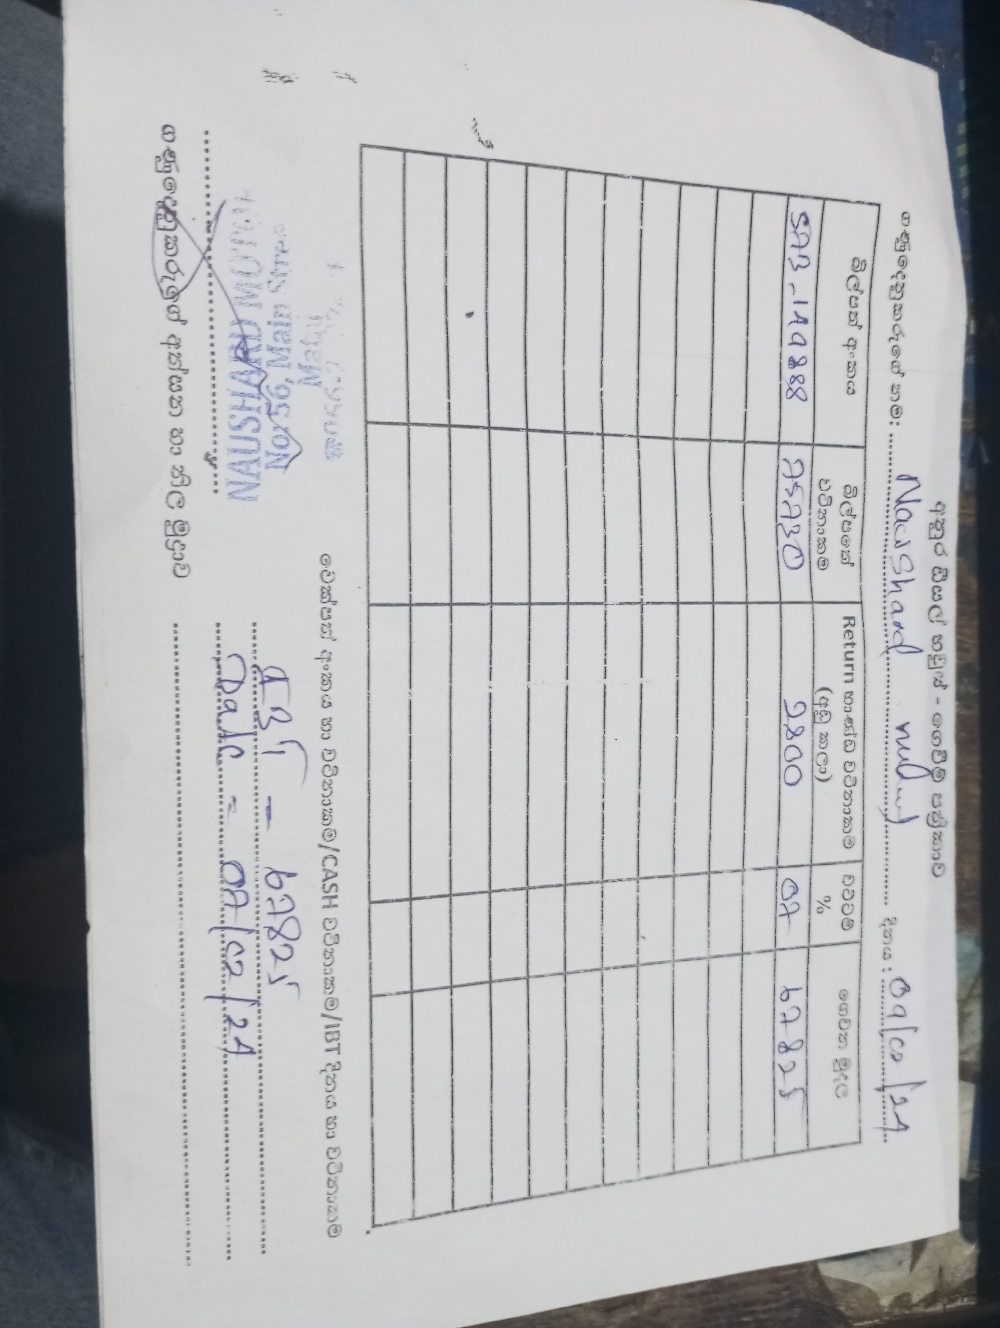 අනුර ඩීසල් හවුස් - ගෙවීම් පත්‍රිකාව
ගණුදෙනුකරුගේ නම: Naushard දිනය : 09/02/24
බිල්පත් අංකය බිල්පතේ වටිනාකම Return භාණ්ඩ වටිනාකම (අඩු කලා) වට්ටම් % ගෙවන මුදල
2800 07 67825
චෙක්පත් අංකය හා වටිනාකම/CASH වටිනාකම/IBT දිනය හා වටිනාකම
IBT - 67825
Date - 07/02/24
NAUSHARD MOTOR
No. 56, Main Street
ගණුදෙනුකරුගේ අත්සන හා නිල මුද්‍රාව